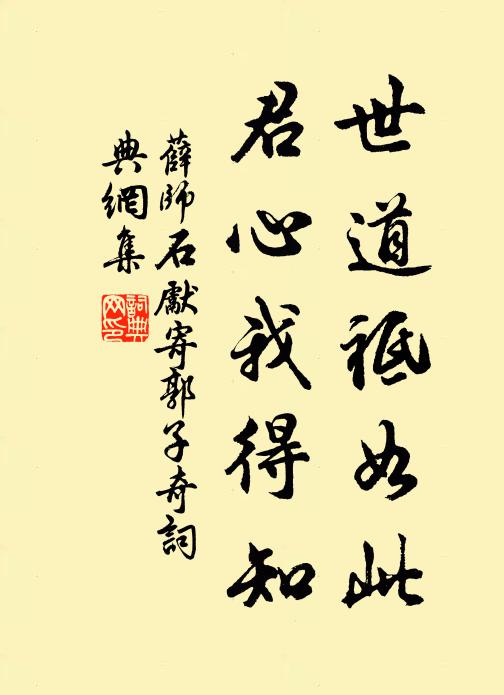 世道祗如此
君心我得知
薛師石獻寄郭子奇詞
典網集
詞典網印